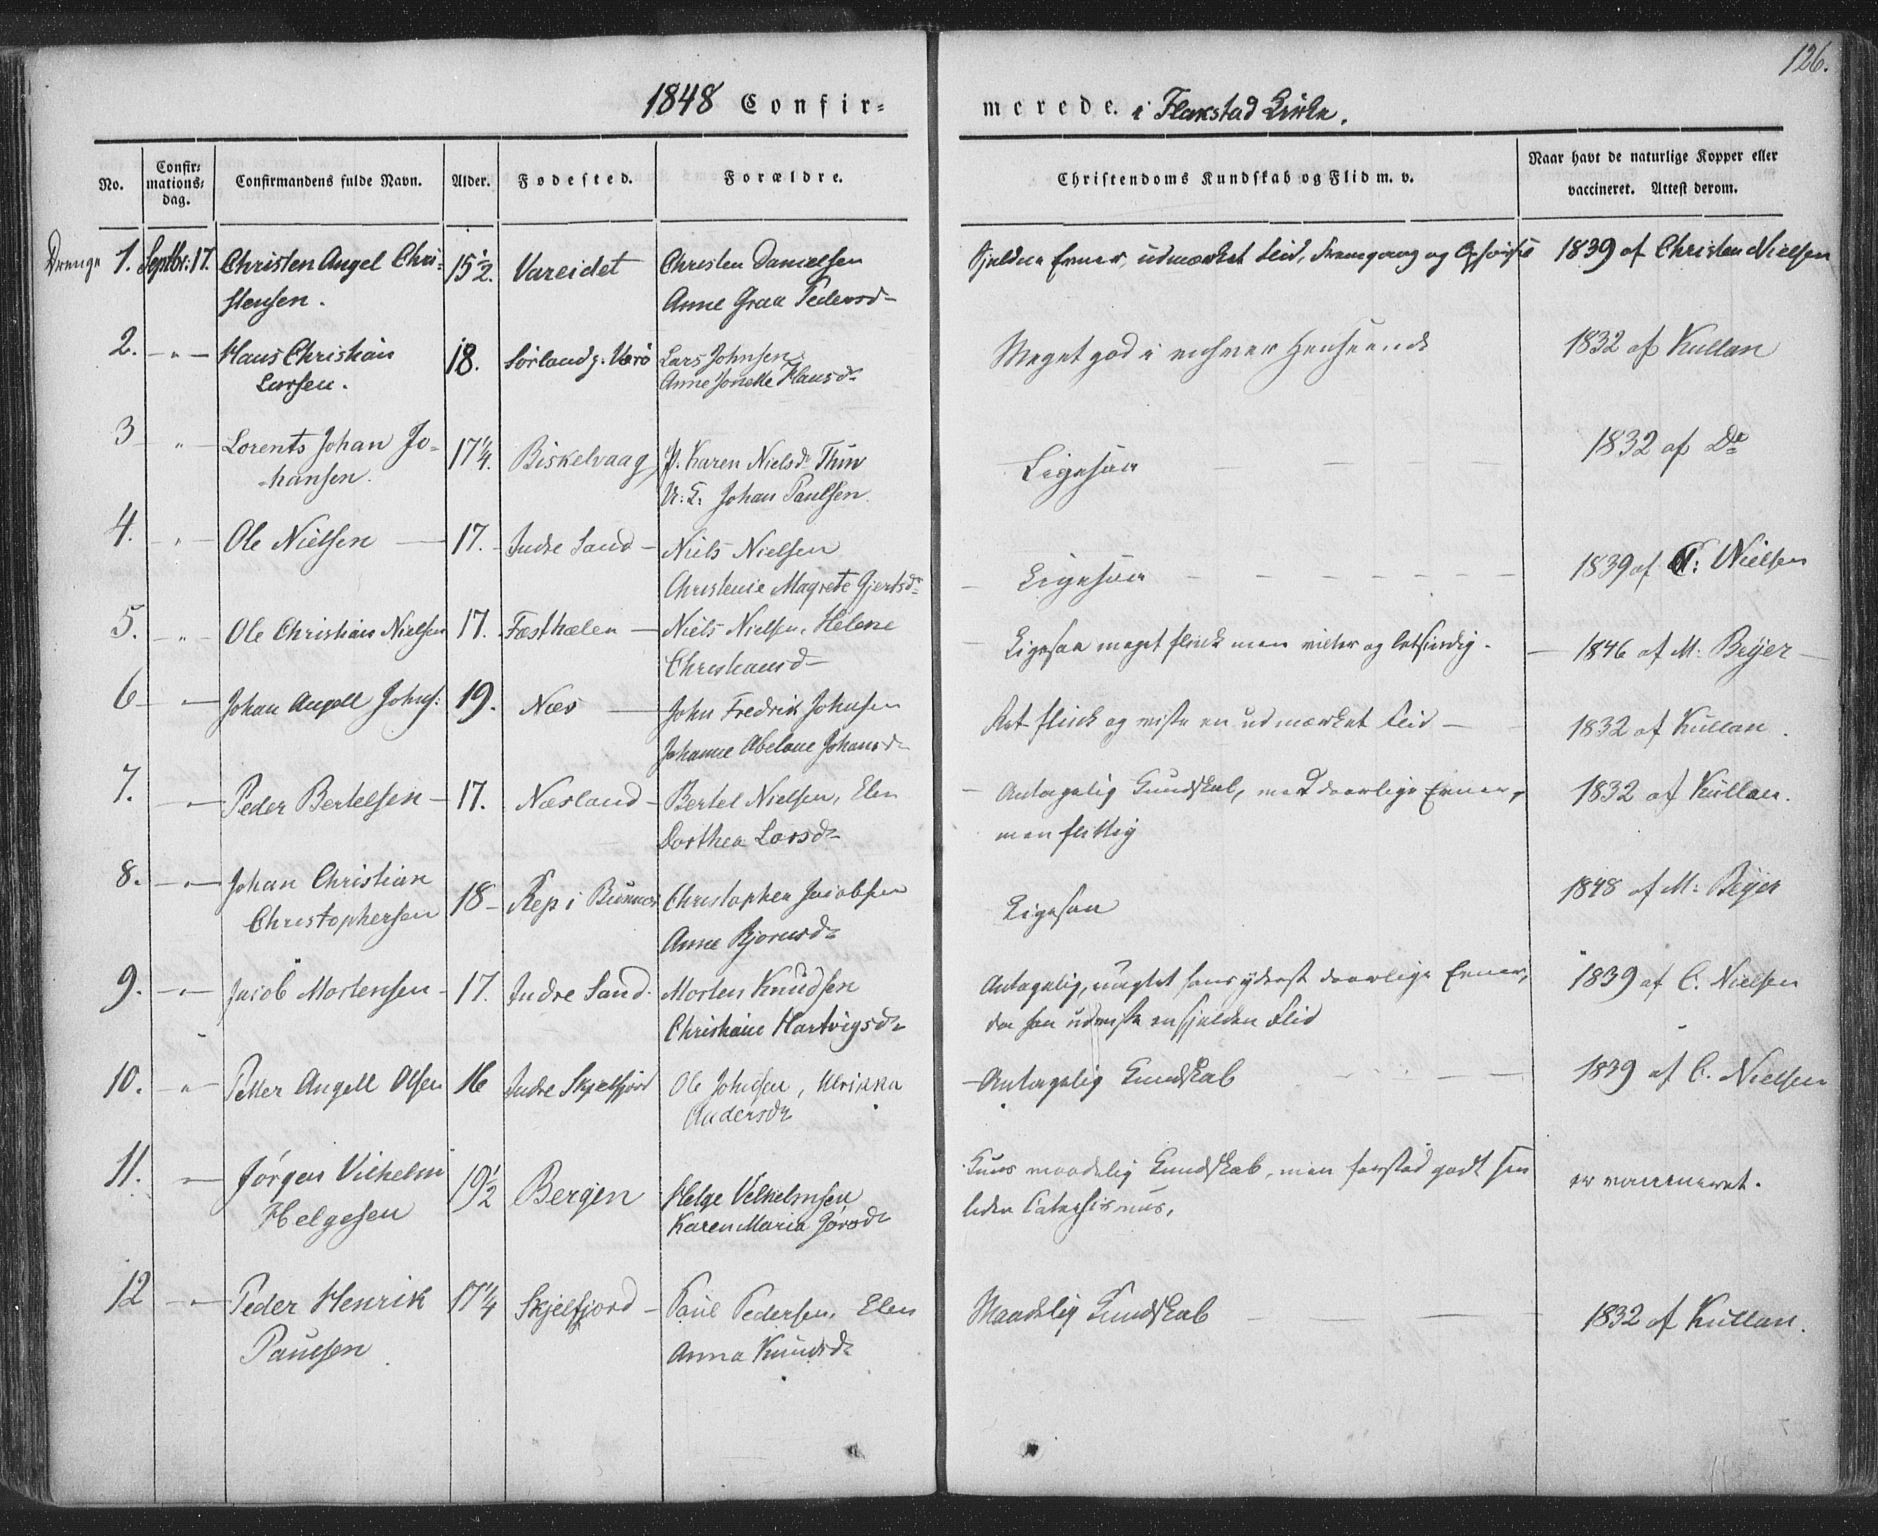 126.
1848 Confir-merede. i Flakstad Kirke.
No.
Confir-
mations-
dag.
Confirmandens fulde Navn.
Alder.
Fødested.
Forældre.
Christendoms Kundskab og Flid m. v.
Naar havt de naturlige Kopper eller
vaccineret. Attest derom.
Drenge 1. Septbr. 17. Christen Angel Chri- 15½. Vareidet Christen Danielsen Sjeldne Evner, udmærket Flid, Fremgang og Opførsel 1839 af Christen Nielsen
stensen. Anne Graa Pedersd
2. — " — Hans Christian 18. Sørland p. Værø Lars Johnsen Meget god i enhver Henseende 1832 af Kullan
Larsen. Anne Jonette Hansd
3 " — Lorents Johan Jo- 17¼. Biskelvaag P. Karen Nielsd Ligesaa — — — 1832 af Do
hansen. U. K. Johan Paulsen.
4. — " — Ole Nielsen — 17. Indre Sand — Niels Nielsen Ligesaa — — — 1839 af C: Nielsen
Christense Magrete Gjertsd
5. — " — Ole Christian Nielsen 17. Fæsthælen — Niels Nielsen, Helene Ligesaa meget flink men vilter og letsindig. — 1846 af M: Beyer —
Christiansd
6 — " — Johan Angell Johns: 19. Næs — John Fredrik Johnsen Ret flink og viste en udmærket Flid — 1832 af Kullan.
Johanne Abelone Johansd
7. — " — Peder Bertelsen — 17. Næsland — Bertel Nielsen, Elen — Antagelig Kundskab, med daarlige Evner, 1832 af Kullan.
Dorthea Larsd men flittig
8. — " — Johan Christian 18 — Rep i Christopher Jacobsen Ligesaa 1848 af M: Beyer
Christophersen Anne Bjørnsd
9. — " — Jacob Mortensen — 17. Indre Sand. Morten Knudsen Antagelig, uagtet hans yderst daarlige Evner, 1839 af C. Nielsen
Christiane Hartvigsd da han udviste en sjelden Flid
10. " — Petter Angell Olsen 16 Indre Skjelfjord Ole Johnsen, Ulrikka — Antagelig Kundskab — — 1839 af C. Nielsen
Andersd
11. — " — Jørgen Vilhelm 19½ Bergen Helge Velhelmsen Kuns maadelig Kundskab, men forstod godt sin er vaccineret.
Helgesen Karen Maria Jørsd liden Catechismus.
12 — " — Peder Henrik 17¼ Skjelfjord — Paul Pedersen, Elen Maadelig Kundskab — — — 1832 af Kullan.
Paulsen Anna Knudsd